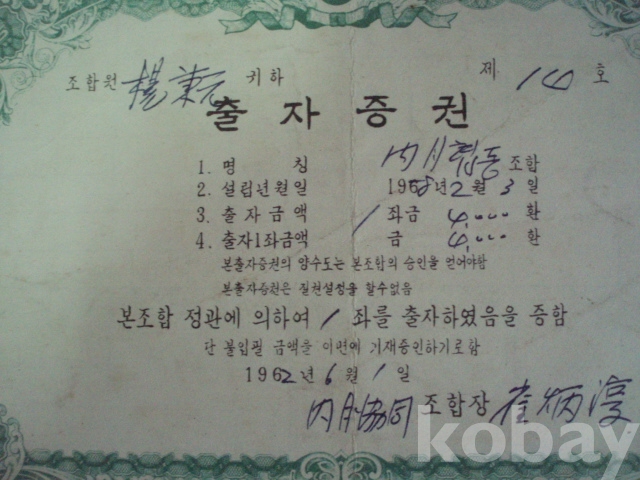 조합원 楊秉元 귀하 제 14 호
출자증권
1. 명 칭 内月협동 조합
2. 설립년월일 1968년 2월 3일
3. 출자금액 1 좌금 4,000 환
4. 출자1좌금액 금 4,000 환
본출자증권의 양수도는 본조합의 승인을 얻어야함
본출자증권은 질권설정을 할수없음
본조합 정관에 의하여 1 좌를 출자하였음을 증함
단 불입필 금액을 이면에 기재증인하기로함
1962년 6월 1일
内月協同 조합장 崔炳淳
kobay